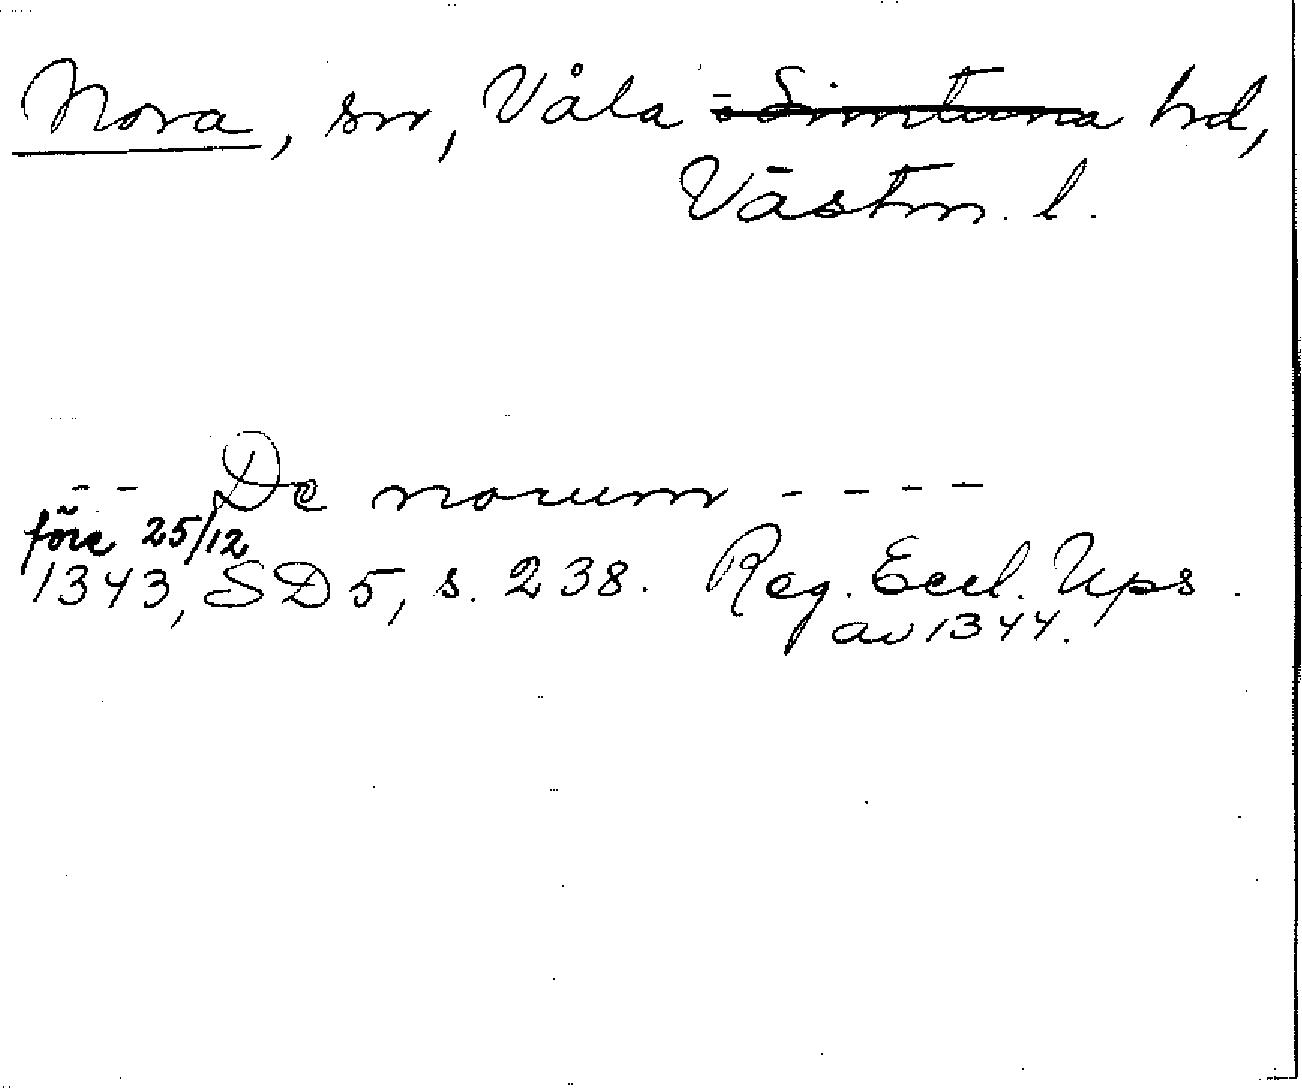 Nora, sn, Våla ö Simtuna hd,
Västm. l.
- - De norum - - - -
före 25/12
1343, SD 5, s. 238. Reg. Eccl. Ups.
av 1344.